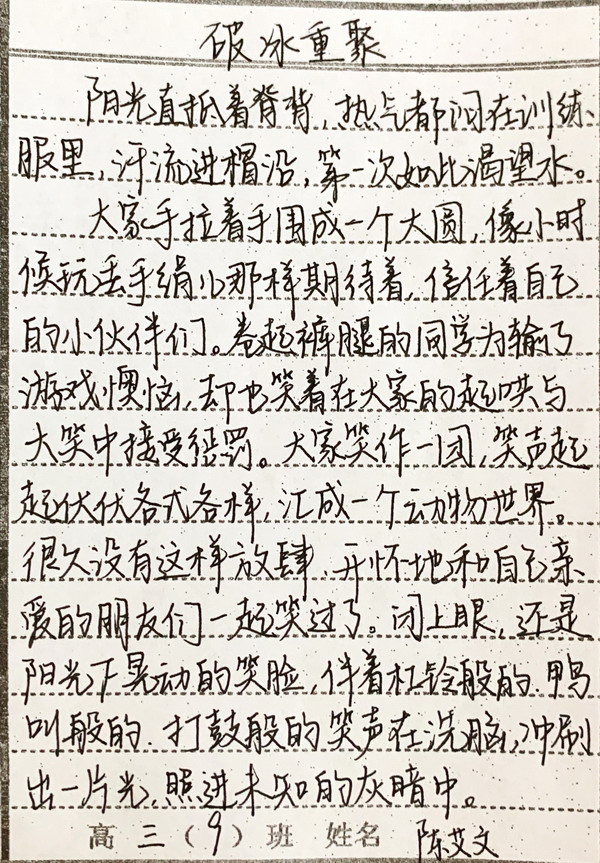 破冰重聚
阳光直抵着脊背，热气都闷在训练
服里，汗流进帽沿，第一次如此渴望水。
大家手拉着手围成一个大圆，像小时
候玩丢手绢儿那样期待着，信任着自己
的小伙伴们。卷起裤腿的同学为输了
游戏懊恼，却也笑着在大家的起哄与
大笑中接受惩罚。大家笑作一团，笑声起
起伏伏各式各样，汇成一个动物世界。
很久没有这样放肆、开怀地和自己亲
爱的朋友们一起笑过了。闭上眼，还是
阳光下晃动的笑脸，伴着杠铃般的、鸭
叫般的、打鼓般的笑声在洗脑，冲刷
出一片光，照进未知的灰暗中。
高三（9）班 姓名 陈艾文